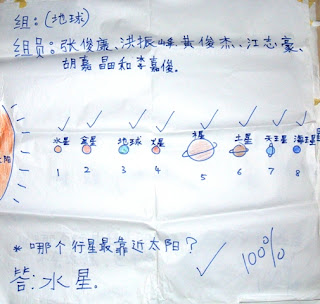 组:(地球)
组员:张俊廉、洪振峰、黄俊杰、江志豪、
胡嘉晶和李嘉俊。
水星 金星 地球 火星 木星 土星 天王星 海王星
1 2 3 4 5 6 7 8
*哪个行星最靠近太阳?
答:水星。
100%